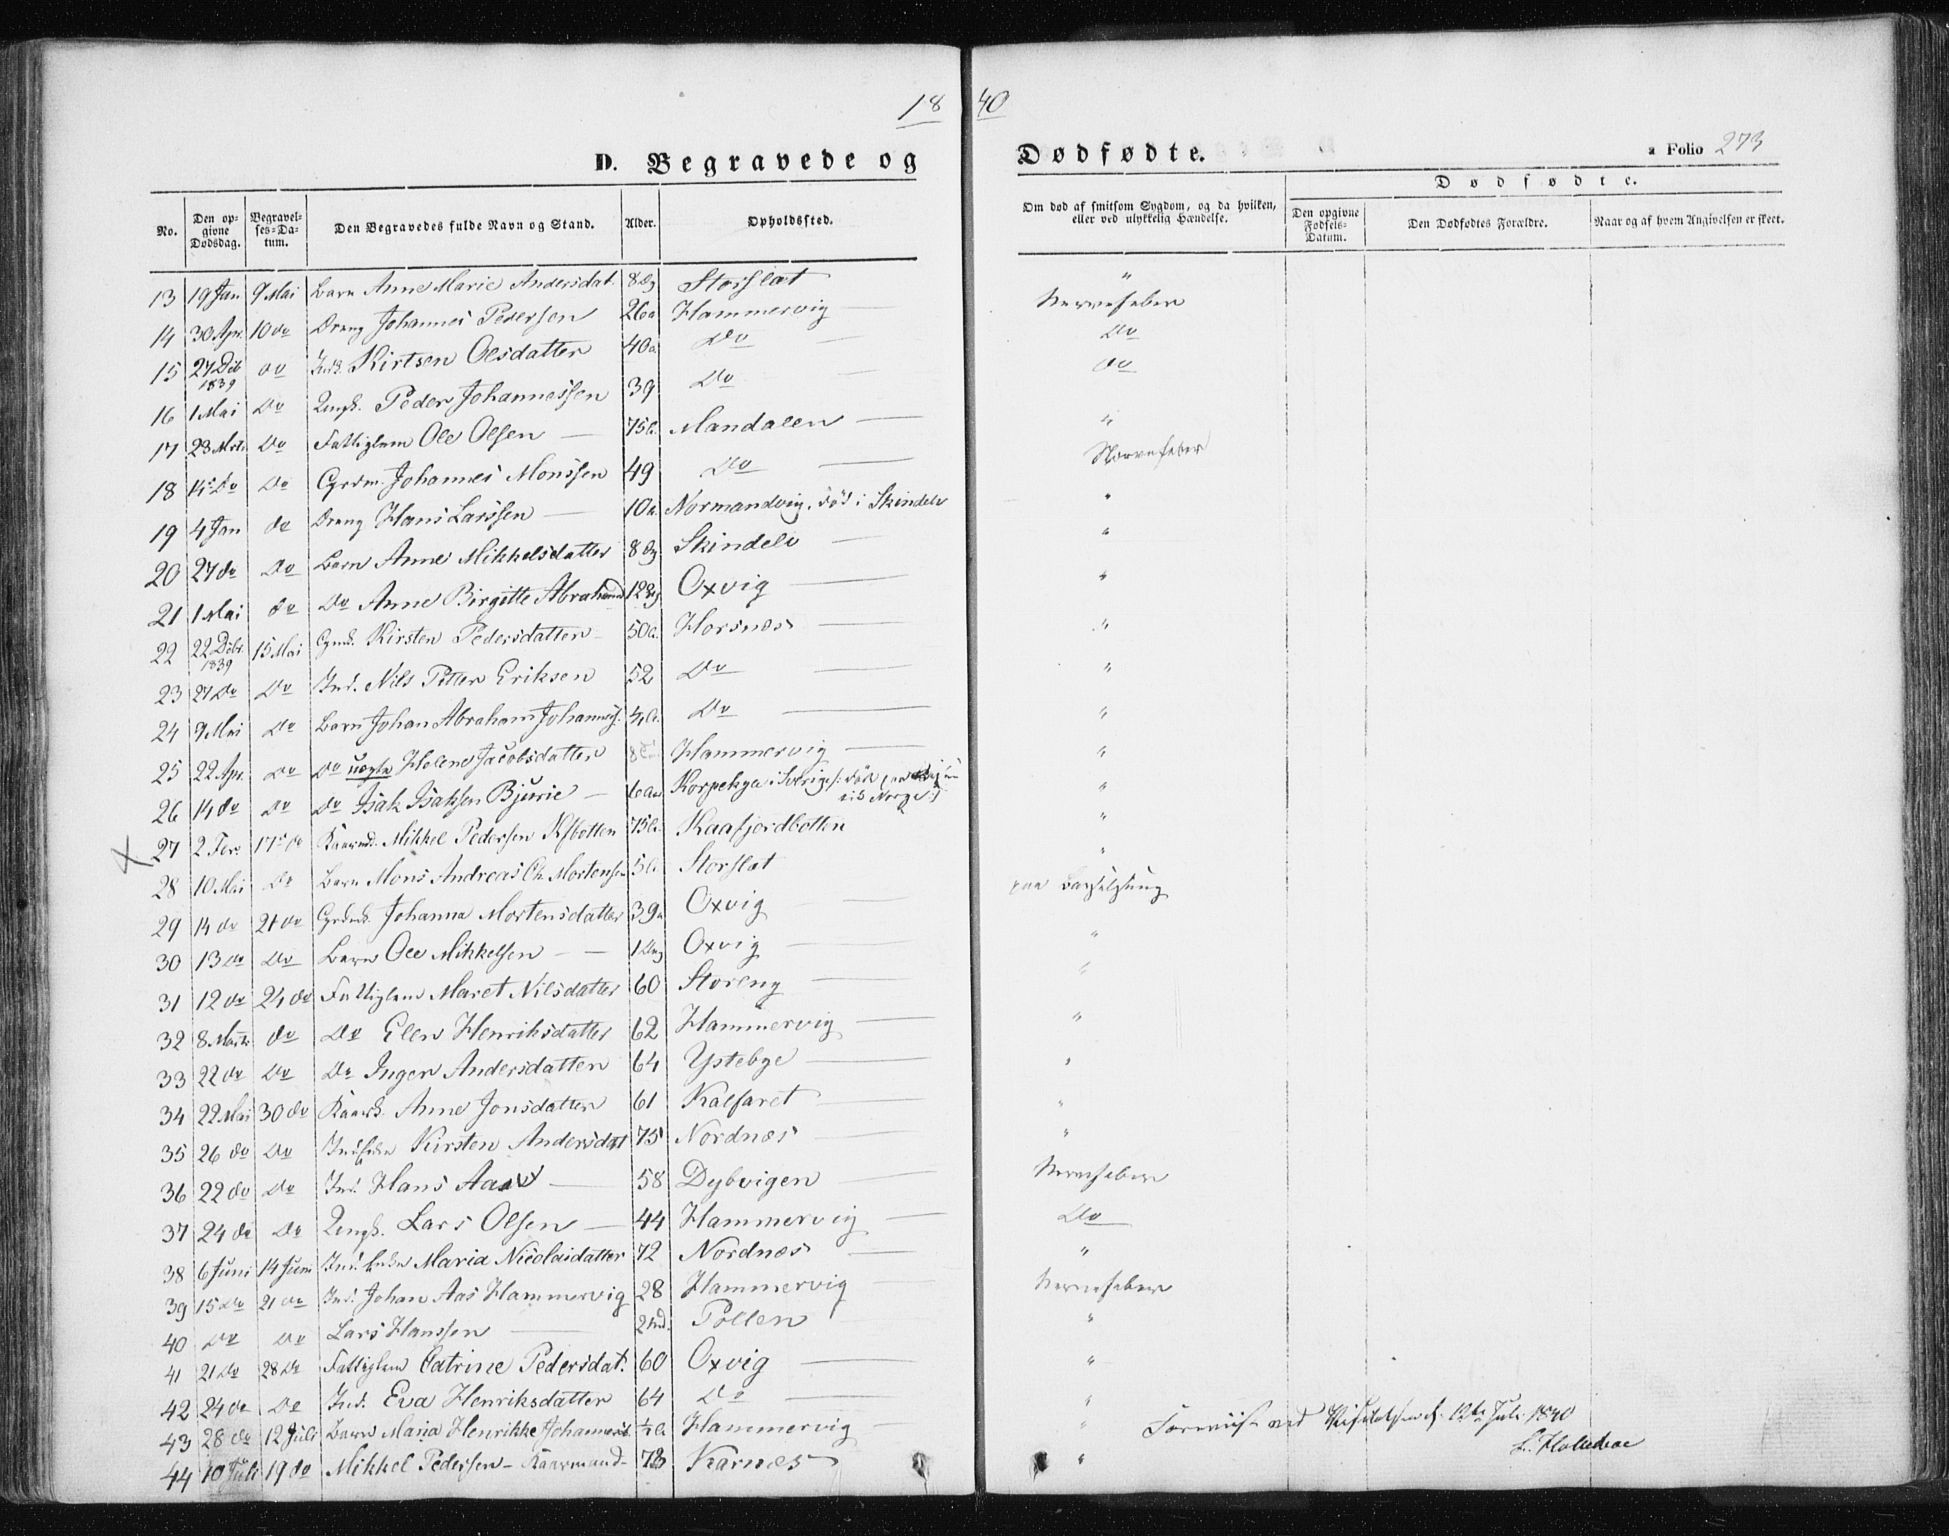 18 40
D. Begravede og Dødfødte.
a Folio 273
No. Den opgivne Dødsdag. Begravelses-Datum. Den Begravedes fulde Navn og Stand. Alder. Opholdssted. Om død af smitsom Sygdom, og da hvilken, eller ved ulykkelig Hændelse. Dødfødte. Den opgivne Fødsels-Datum. Den Dødfødtes Forældre. Naar og af hvem Angivelsen er skeet.
13 19 Jan 9 Mai Barn Anne Marie Andersdat. 8 Dg Storslat "
14 30 Apr. 10 do Dreng Johannes Pedersen 26 a Hammervig Nervefeber
15 27 Dcb 1839 do Ind. Kirtsen Olsdatter 40 a Do Do
16 1 Mai Do Ungk. Peder Johannessen 39 Do Do
17 28 Mrts Do Fattiglem Ole Olsen 75 Mandalen "
18 14 Do Do Grdm. Johannes Monssen 49 Do Nervefeber
19 4 Jan do Dreng Hans Larssen 10 a Normandvig, død i Skindelv "
20 27 do Do Barn Anne Mikkelsdatter 8 Dg Skindelv "
21 1 Mai do Do Anne Birgitte Abrahamd 12 Dg Oxvig "
22 22 Dcbr. 1839 15 Mai Kirsten Pedersdatter 50 Horsnæs "
23 27 Do Do Ind. Nils Petter Eriksen 52 Do "
24 9 Mai Do Barn Johan Abraham Johannes. Do "
25 22 Apr. Do Do uægte Helene Jacobsdatter 8 Hammervig "
26 14 do Do Do Isak Isaksen Bjurie 6 Korpekya i Sverige til Norge "
27 2 Febr. 17 do Kaarmd. Mikkel Pedersen Kfbotten 75 Kaafjordbotten "
28 10 Mai Do Barn Mons Andreas Ch Mortensen 5 Storslat "
29 14 do 21 do Johanna Mortensdatter 39 a Oxvig paa Barselseng
30 13 Do Do Barn Ole Mikkelsen 1 Dag Oxvig "
31 12 do 24 do Fattiglem Maret Nilsdatter 60 Storeng "
32 8 Marts do Do Elen Henriksdatter 62 Hammervig "
33 22 do Do Do Inger Andersdatter 64 Ystebye "
34 22 Mai 30 do Kaark. Anne Jonsdatter 61 Kalfaret "
35 26 do Do Kirsten Andersdat 75 Nordnæs "
36 22 do Do Ind. Hans Aas 58 Dybvigen Nervefeber
37 24 do Do Ungk. Lars Olsen 44 Hammervig Do
38 6 Juni 14 Juni Maria Nicolaidatter 72 Nordnæs "
39 15 Do 21 do Ind. Johan Aas Hammervig 28 Hammervig Nervefeber
40 Do Do Lars Hanssen 2 Md. Pollen "
41 21 Do 28 Do Fattiglem Catrine Pedersdat. 60 Oxvig "
42 24 do Do Ind. Eva Henriksdatter 64 Do "
43 28 do 12 Juli Barn Maria Henrikke Johannesd. ½ Hammervig "
44 10 Juli 19 do Mikkel Pedersen - Kaarmand - 73 Karnæs "
Foreviist ved Visitatsen d. 12te Juli 1840